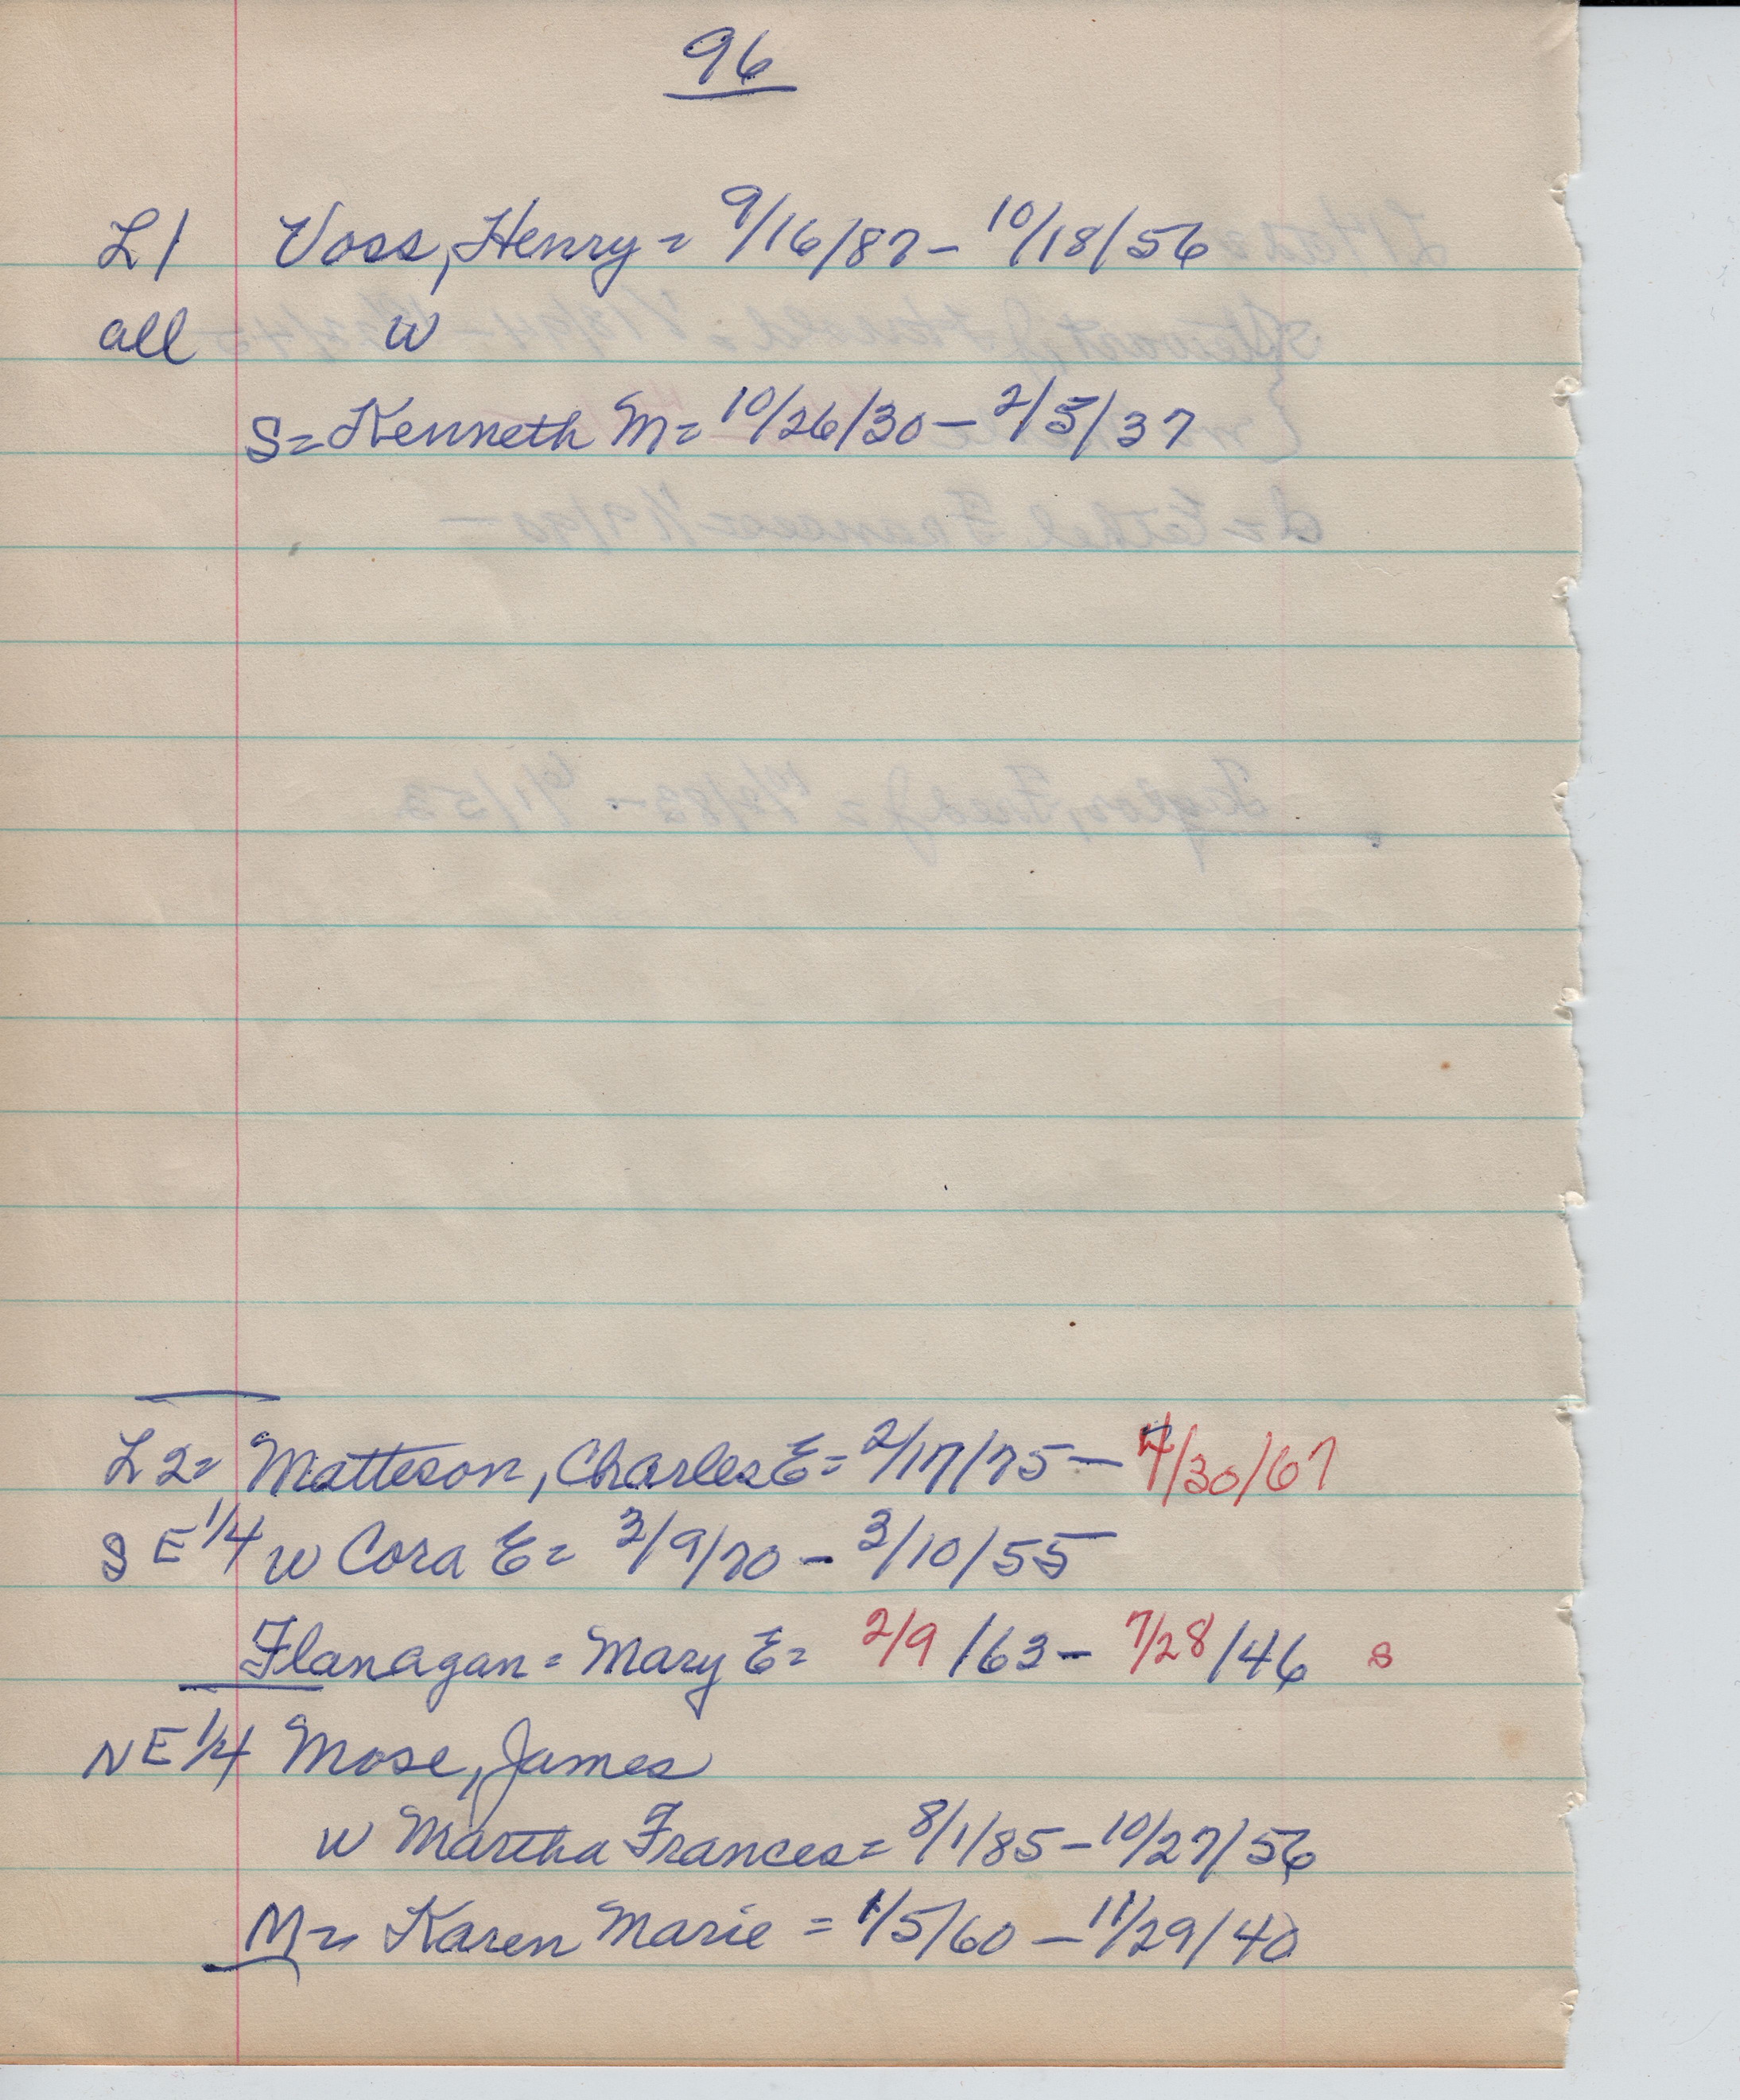 96
L1 Voss, Henry = 9/16/87 - 10/18/56
all W
S = Kenneth M = 10/26/30 - 2/5/37
L2 = Matteson, Charles E = 2/17/75 - 4/30/67
SE 1/4 W Cora E = 3/9/70 - 3/10/55
Flanagan = Mary E = 2/9/63 - 7/28/46 s
NE 1/4 Mose, James
W Martha Frances = 8/1/85 - 10/27/56
M = Karen Marie = 1/5/60 - 11/29/40